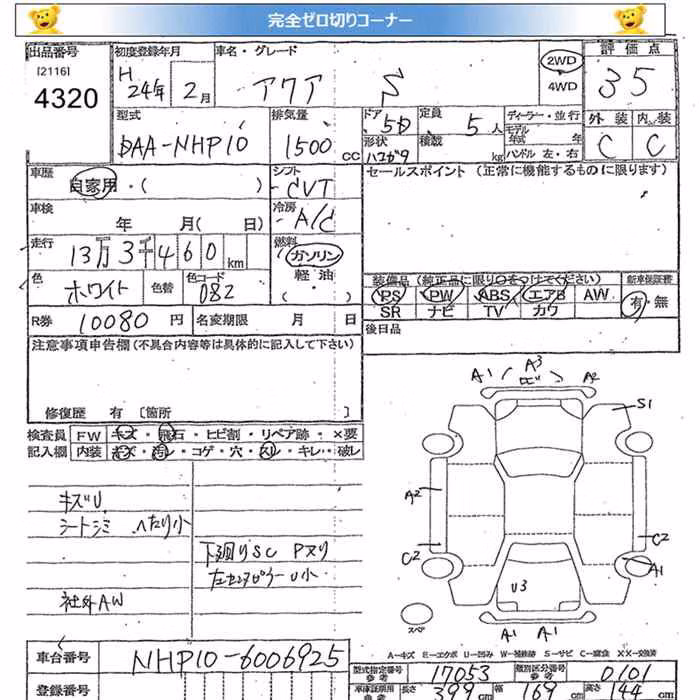 完全ゼロ切りコーナー
出品番号 初度登録年月 車名・グレード 2WD 評価点
[2116] H 4WD
4320 24年 2月 アクア S 35
型式 排気量 ドア 定員 ディーラー・並行 外装 内装
DAA-NHP10 1500cc 5D 5人 モデル年式 年 C C
形状 積載 kg ハンドル 左・右
車歴 シフト セールスポイント (正常に機能するものに限ります)
自家用・( ) CVT
車検 冷房
年 月( 日) A/C
走行 燃料
13万3千460km ガソリン
色 色替 色コード 軽油 装備品 (純正品に限り○をつけてください) 新車保証書
ホワイト 082 ・( ) PS PW ABS エアB AW 有・無
SR ナビ TV カワ
R券 10080円 名変期限 月 日 後日品
注意事項申告欄(不具合内容等は具体的に記入して下さい)
修復歴 有 [箇所 ]
検査員 FW キズ・飛石・ヒビ割・リペア跡・×要
記入欄 内装 キズ・汚レ・コゲ・穴・スレ・キレ・破レ
キズU
シートシミ へたり小
下廻りSC Pヌリ
社外AW
A1 A3 A2
S1
A2
C2 C2
A1
U3
スペア A1 A1
A-キズ E-エクボ U-凹み W-補修跡 S-サビ C-腐食 XX-交換済
車台番号 NHP10-6006925
型式指定番号 参考 17053 類別区分番号 参考 0101
登録番号 車庫証明用 参考 長さ 399cm 幅 169cm 高さ 144cm